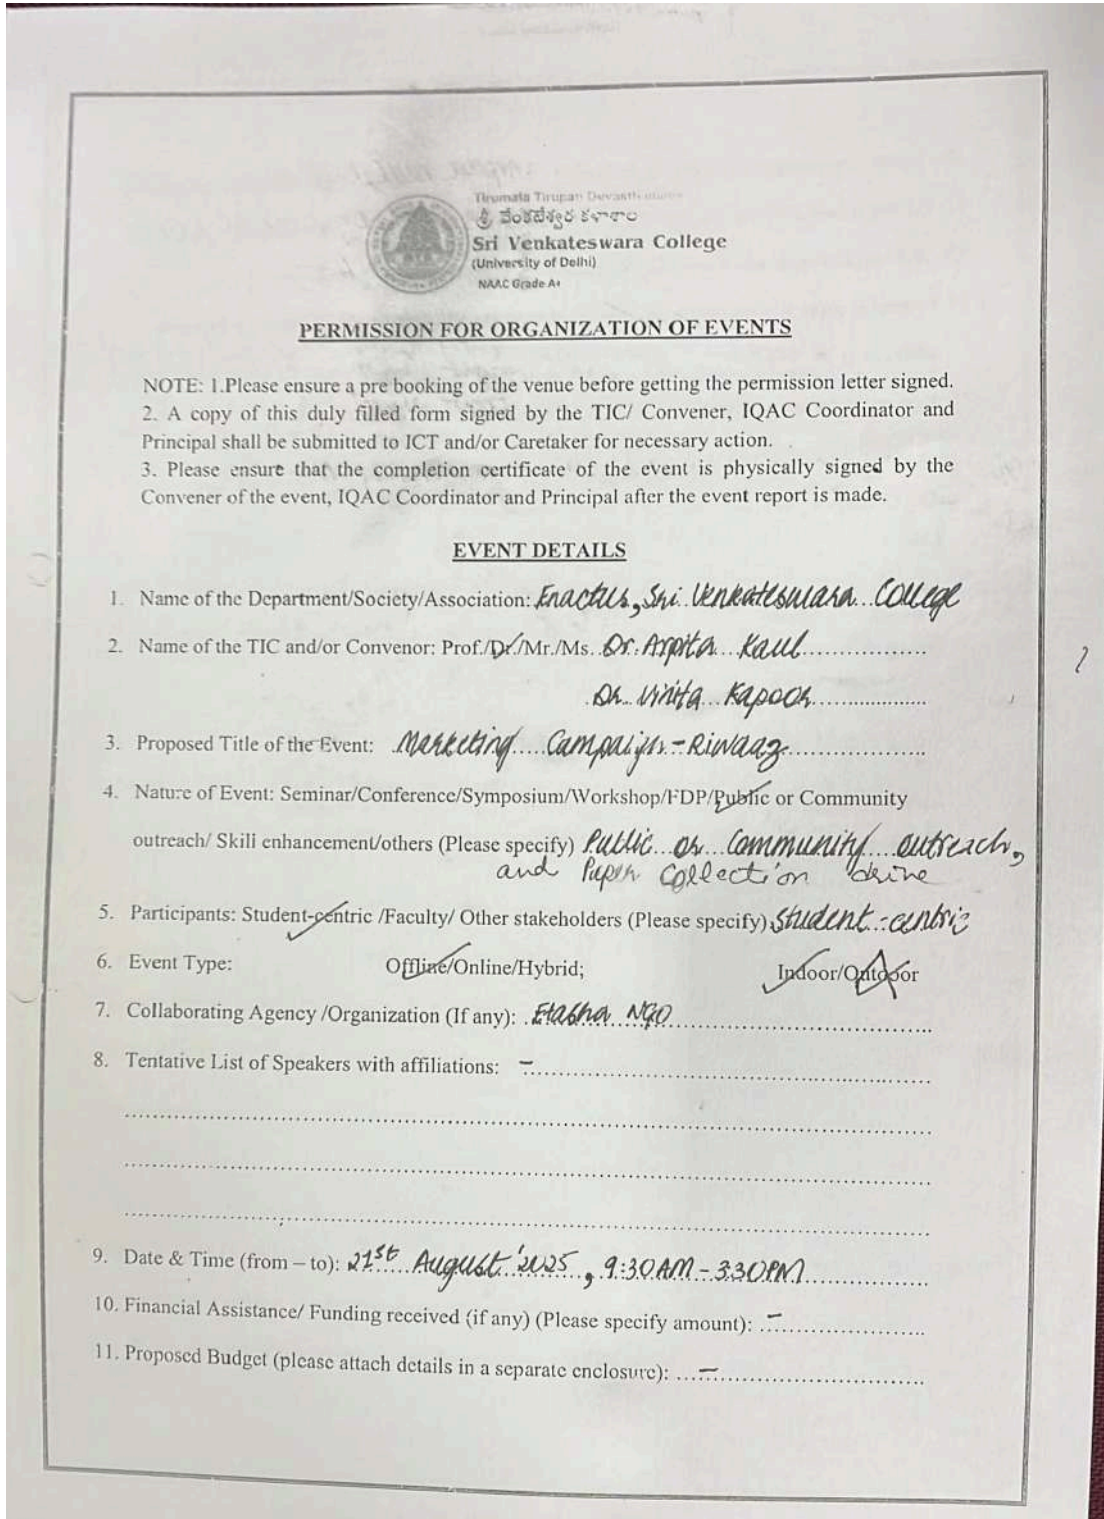 Tirumala Tirupati Devasthanams
శ్రీ వేంకటేశ్వర కళాశాల
Sri Venkateswara College
(University of Delhi)
NAAC Grade A+
PERMISSION FOR ORGANIZATION OF EVENTS
NOTE: 1.Please ensure a pre booking of the venue before getting the permission letter signed.
2. A copy of this duly filled form signed by the TIC/ Convener, IQAC Coordinator and
Principal shall be submitted to ICT and/or Caretaker for necessary action.
3. Please ensure that the completion certificate of the event is physically signed by the
Convener of the event, IQAC Coordinator and Principal after the event report is made.
EVENT DETAILS
1. Name of the Department/Society/Association: Enactus, Sri Venkateswara College
2. Name of the TIC and/or Convenor: Prof./Dr./Mr./Ms. Dr. Arpita Kaul
Dr. Vinita Kapoor
3. Proposed Title of the Event: Marketing Campaign - Riwaaz
4. Nature of Event: Seminar/Conference/Symposium/Workshop/FDP/Public or Community
outreach/ Skill enhancement/others (Please specify) Public or Community outreach,
and Paper Collection drive
5. Participants: Student-centric /Faculty/ Other stakeholders (Please specify) Student-centric
6. Event Type: Offline/Online/Hybrid; Indoor/Outdoor
7. Collaborating Agency /Organization (If any): Etasha NGO
8. Tentative List of Speakers with affiliations: -
9. Date & Time (from – to): 21st August '2025, 9:30AM - 3:30PM
10. Financial Assistance/ Funding received (if any) (Please specify amount): -
11. Proposed Budget (please attach details in a separate enclosure): -